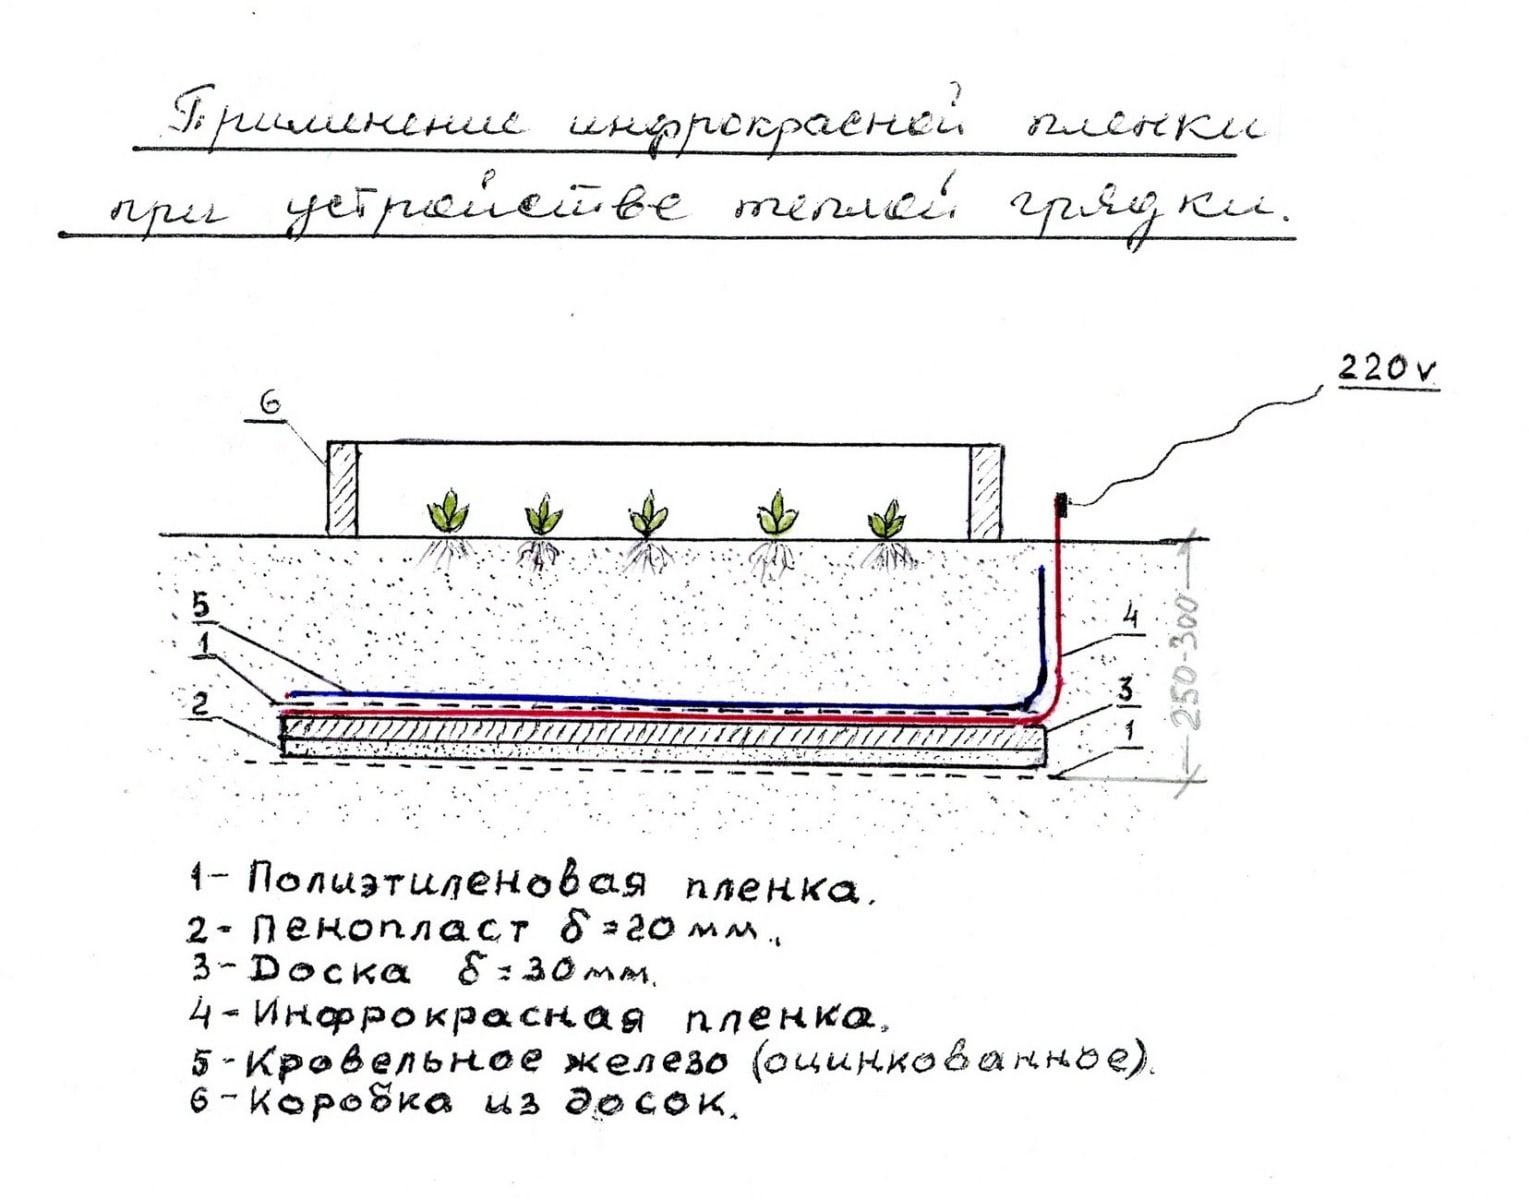 Применение инфрокрасной пленки
при устройстве теплой грядки.
220v
6
5
1
2
4
3
1
250-300
1- Полиэтиленовая пленка.
2- Пенопласт δ=20мм.
3- Доска δ=30мм.
4- Инфрокрасная пленка.
5- Кровельное железо (оцинкованное).
6- Коробка из досок.